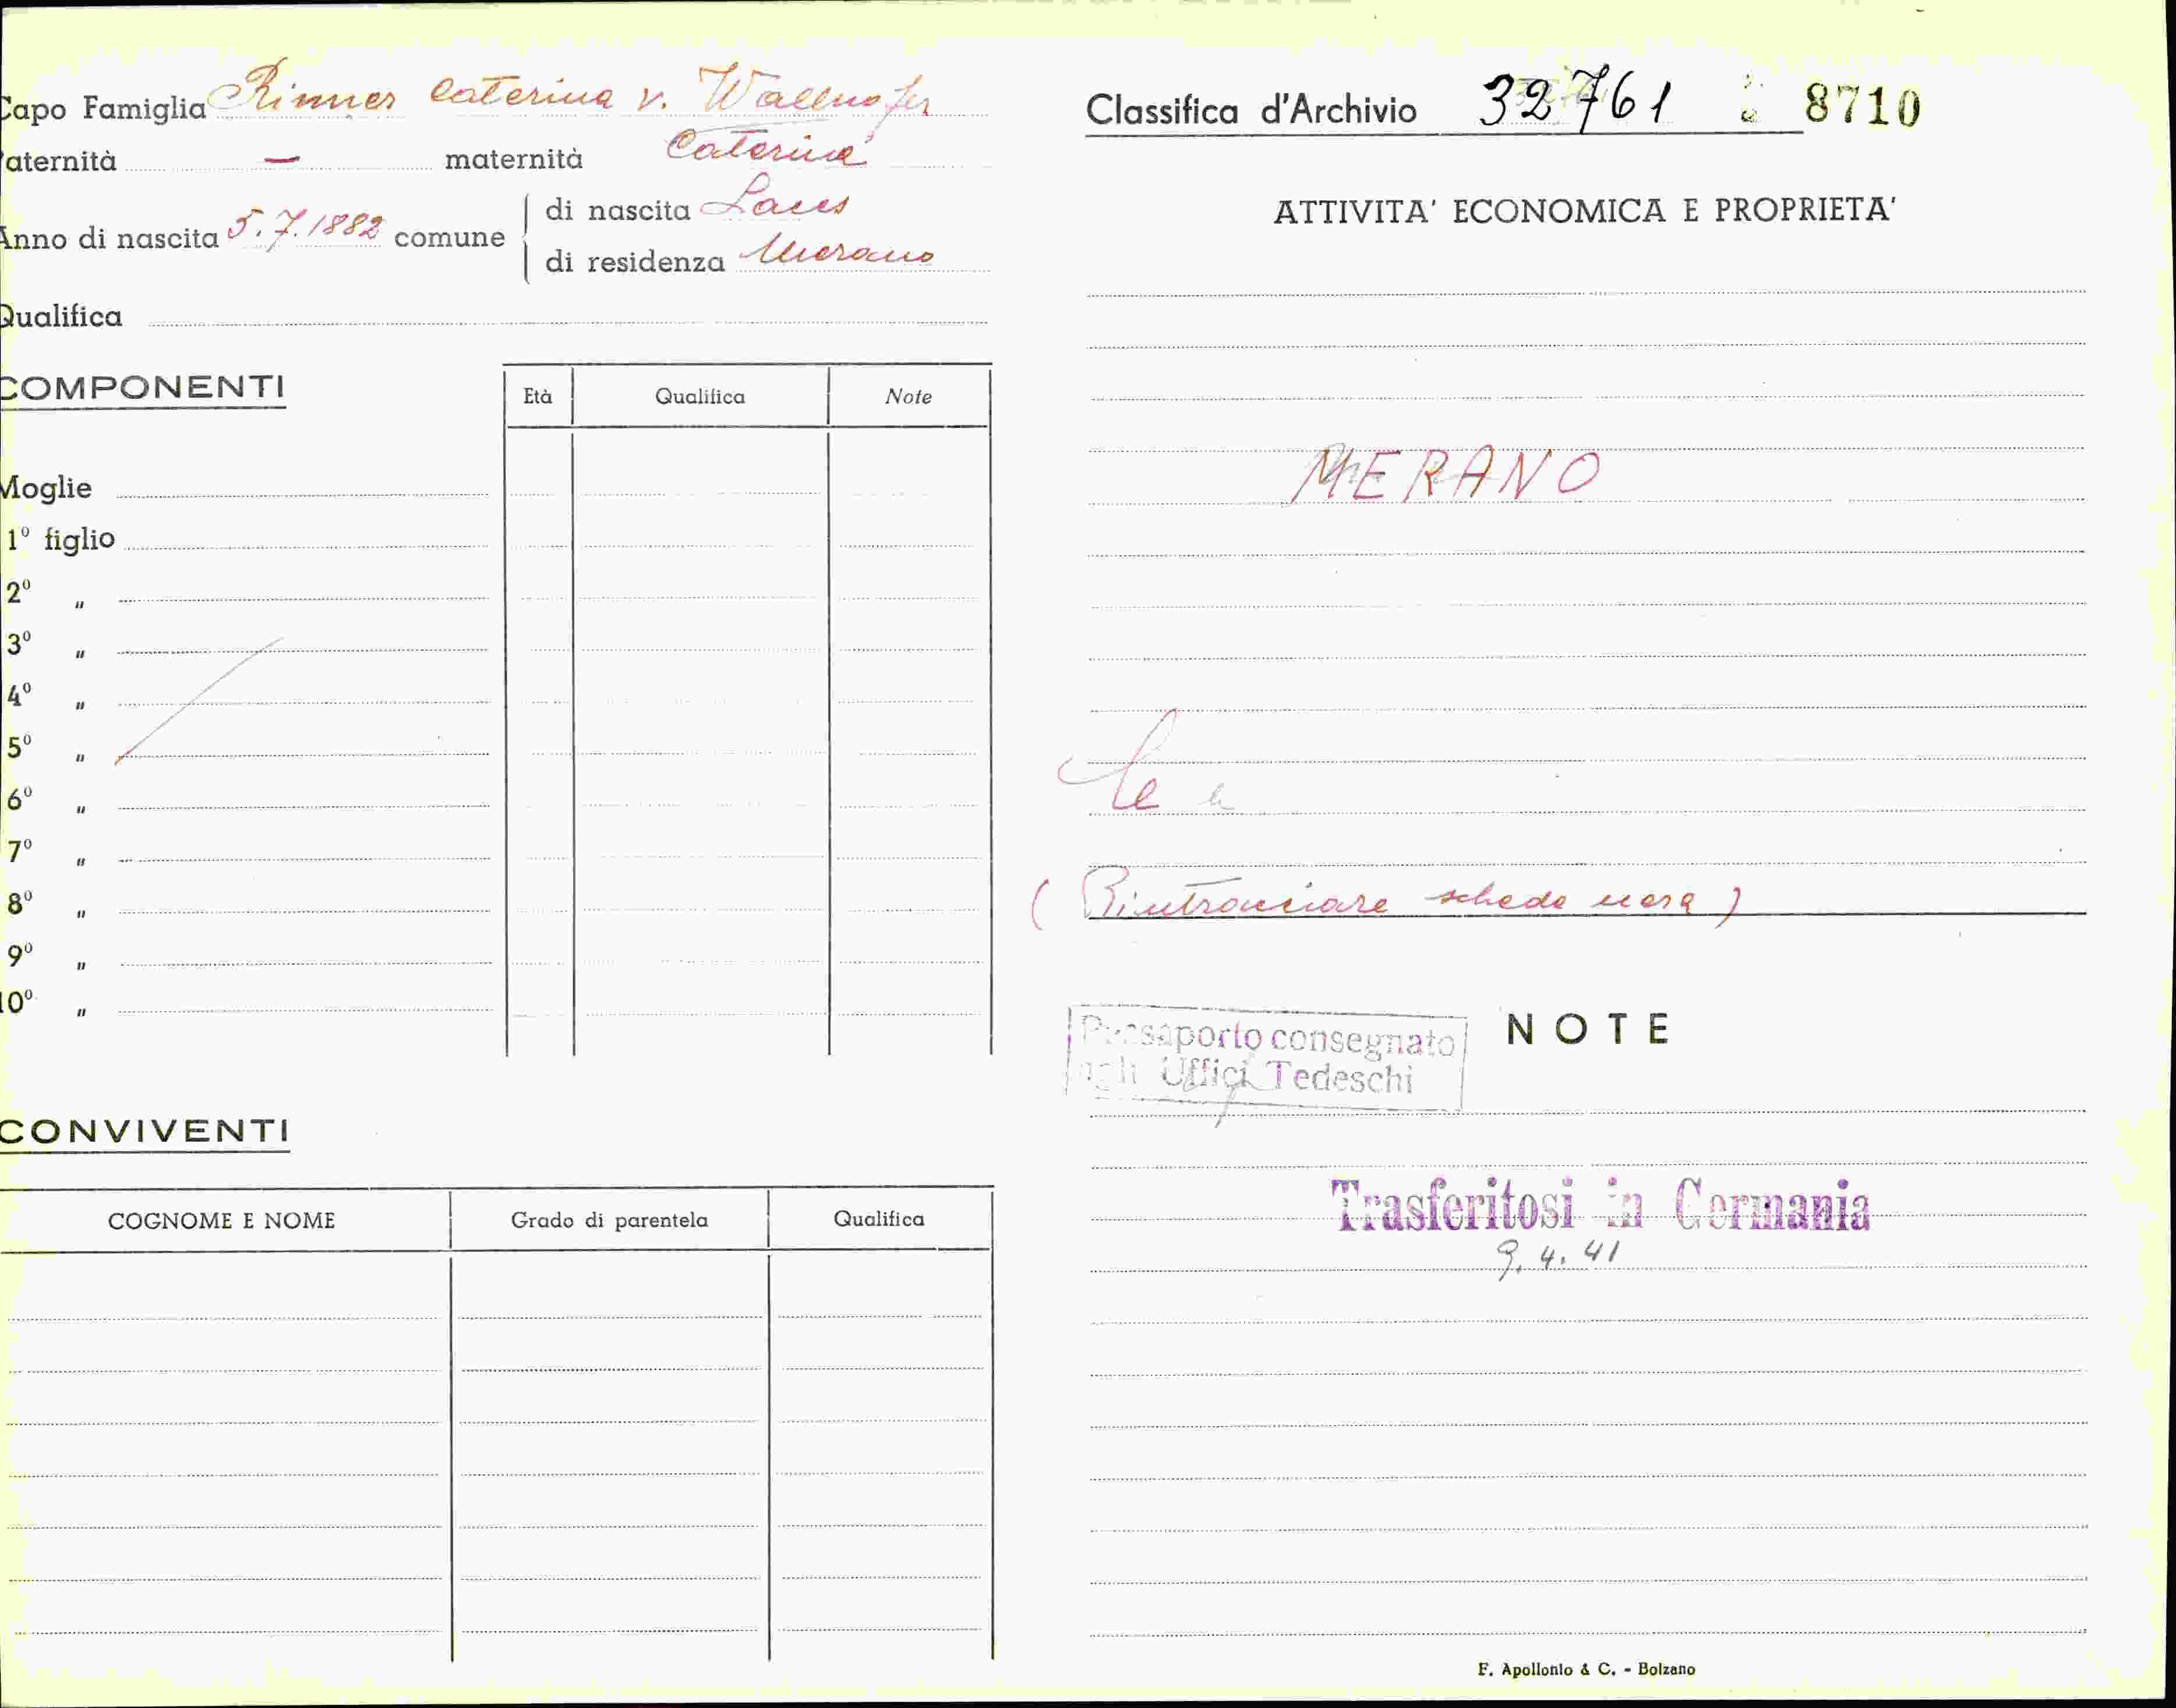 Capo Famiglia Rinner Caterina v. Wallnofer
aternità — maternità Caterina
Anno di nascita 5.7.1882 comune
di nascita Laces
di residenza Merano
Qualifica
COMPONENTI
Età Qualifica Note
Moglie
1º figlio
2º "
3º "
4º "
5º "
6º "
7º "
8º "
9º "
10º "
CONVIVENTI
COGNOME E NOME Grado di parentela Qualifica
Classifica d'Archivio 32761 8710
ATTIVITA' ECONOMICA E PROPRIETA'
MERANO
(Rintracciare scheda nera)
NOTE
Passaporto consegnato
agli Uffici Tedeschi
Trasferitosi in Germania
9.4.41
F. Apollonio & C. - Bolzano